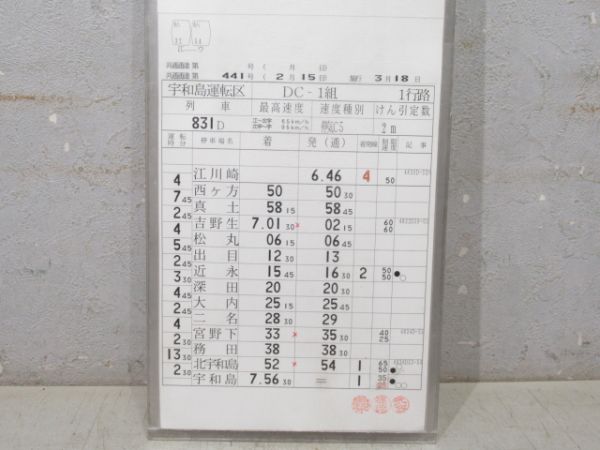 号 ( 月 日)
第 441号 ( 2月15日) 施行 3月18日
宇和島運転区 DC-1組 1行路
列車 最高速度 速度種別 けん引定数
831D 2m
運転時分 停車場名 着 発(通) 着発線 制限速度 記事
江川崎 6.46 4 50
4
西ヶ方 50 50 30
7 45
真土 58 15 58 45
2 45
吉野生 7.01 30 × 02 15 60 60
4
松丸 06 15 06 45
5 45
出目 12 30 13
2 45
近永 15 45 16 30 2 50 50
3 30
深田 20 20 30
4 45
大内 25 15 25 45
2 45
二名 28 30 29
4
宮野下 33 × 35 30 40 25
2 30
務田 38 38 30
13 30
北宇和島 52 × 54 1 65 50
2 30
宇和島 7.56 30 = 1 35